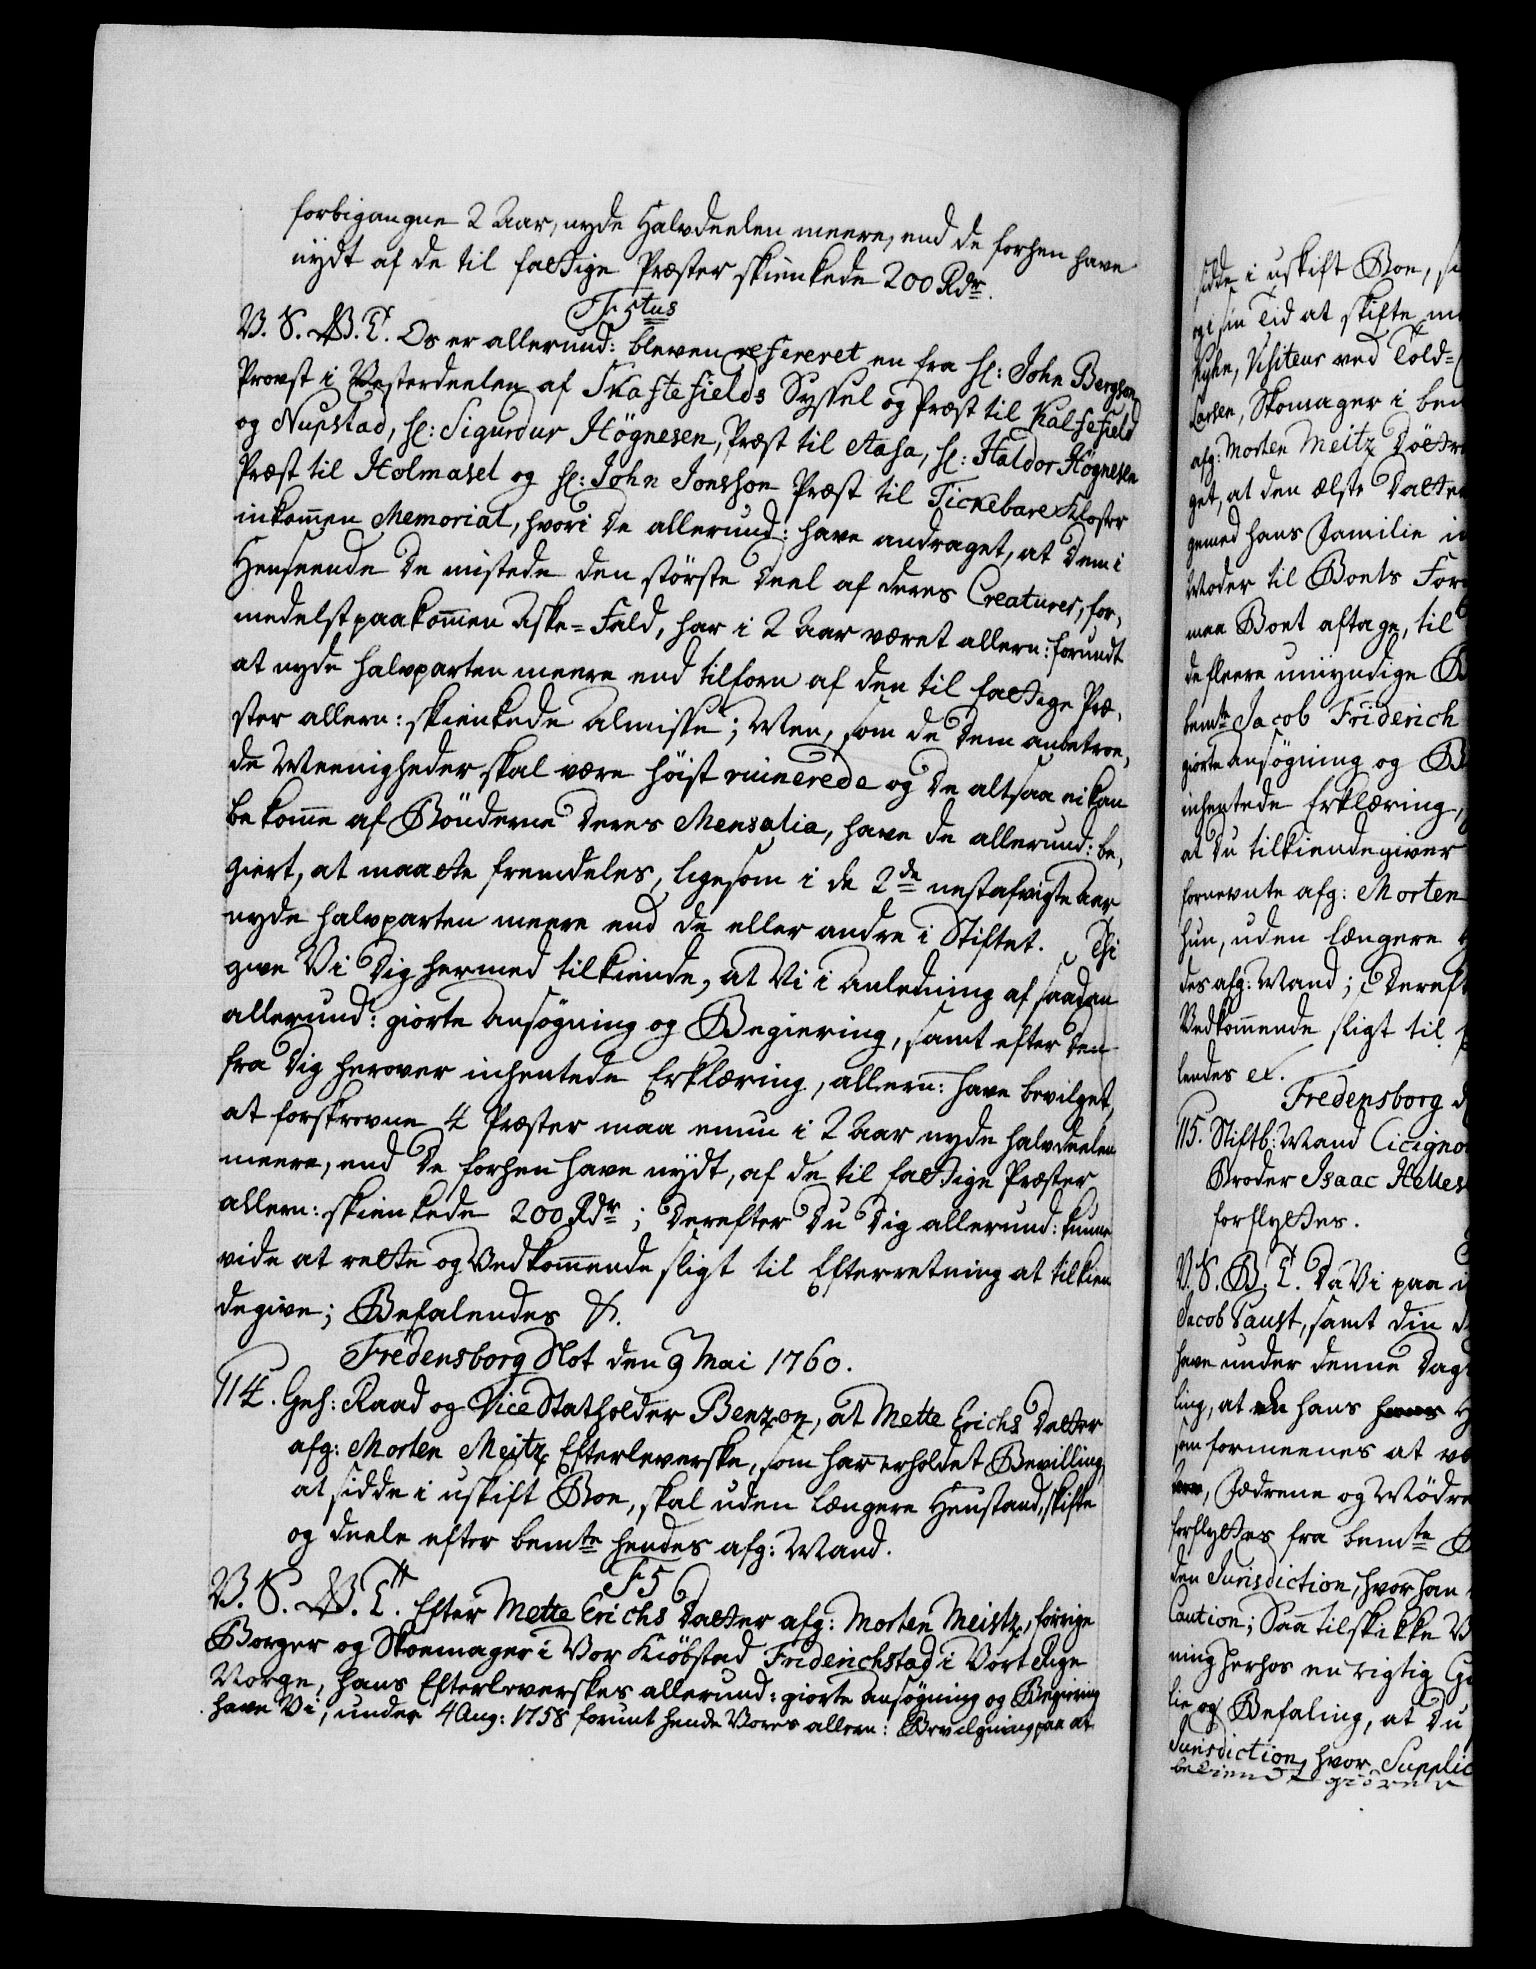 forbigangne 2 Aar, nyde Halvdeelen meere, end de forhen have
nydt af de til fattige Præster skienkede 200 Rdr.
F5tus
V. S. G. T. Os er allerund: bleven refereret en fra Hr: John Bergson
Provst i Vesterdeelen af Skaftefields Syssel og Præst til Kalfefield
og Nupstad, Hr: Sigurdur Högnesen, Præst til Aasa, Hr: Haldor Högnesen
Præst til Holmasel og Hr: John Jonsson Præst til Tickebare Kloster
inkommen Memorial, hvori De allerund: have andraget, at Dem i
Henseende De mistede den störste Deel af deres Creaturer, for,
medelst paakommen Aske-Fald, har i 2 Aar været allern: forundt
at nyde halvparten meere end tilforn af den til fattige Præ,
ster allern: skienkede Almisse; Men, som de Dem anbetroe,
de Meenigheder skal være höist ruinerede og De altsaa ei kan
bekomme af Bönderne Deres Mensalia, have de allerund: be,
giert, at maatte fremdeles, ligesom i de 2de nestafvigte Aar
nyde halvparten meere end de eller andre i Stiftet. Thi
give Vi Dig hermed tilkiende, at Vi i Anledning af saadan
allerund: giorte Ansögning og Begiering, samt efter Den
fra Dig herover inhentede Erklæring, allern: have bevilget,
at forskrevne 4 Præster maa ennu i 2 Aar nyde halvdeelen
meere, end De forhen have nydt, af de til fattige Præster
allern: skienkede 200 Rdr; Derefter Du Dig allerund: kunne
vide at rette og Vedkommende sligt til Efterretning at tilkien
degive; Befalendes &.
Fredensborg Slot den 9 Mai 1760.
114. Geh: Raad og Vice Statholder Benzon, at Mette Erichs Datter
afg: Morten Meitz Efterleverske, som har erholdet Bevilling,
at sidde i uskift Boe, skal uden længere Henstand, skifte
og deele efter bemte hendes afg: Mand.
F5
V. S. G. T. Efter Mette Erichs Datter afg: Morten Meistz, forrige
Borger og Skoemager i Vor Kiöbstad Friderichstad i Vort Rige
Norge, hans Efterleverskes allerund: giorte Ansögning og Begiering
have Vi, under 4 Aug: 1758 forunt hende Vores allern: Bevilgning paa at
sidde i uskift Boe,
og i sin Tid at skifte
Kyhn, Visiteur ved Told-
Larsen, Skomager i
afg: Morten Meitz
get, at den ælste Datter
gemed hans Familie
Moder til Boets
maa Boet aftage, til
de fleere umyndige
bemte Jacob Friderich
giorte Ansögning og
inhentede Erklæring,
at Du tilkiendegiver
fornevnte afg: Morten
hun, uden længere
des afg: Mand;
Vedkommende sligt til
lendes &.
Fredensborg
115. Stiftb: Mand Cicigno
Broder Isaac
forflyttes.
V. S. G. T. Da Vi paa
Jacob Faust, samt Din
have under denne Dags
ling, at hans
som formeenes at
Fædrene og Mödre
forflyttes fra bemte
den Jurisdiction, hvor han
Caution; Saa tilskikke
ning herhos en rigtig
lie og Befaling, at Du
Jurisdiction, hvor